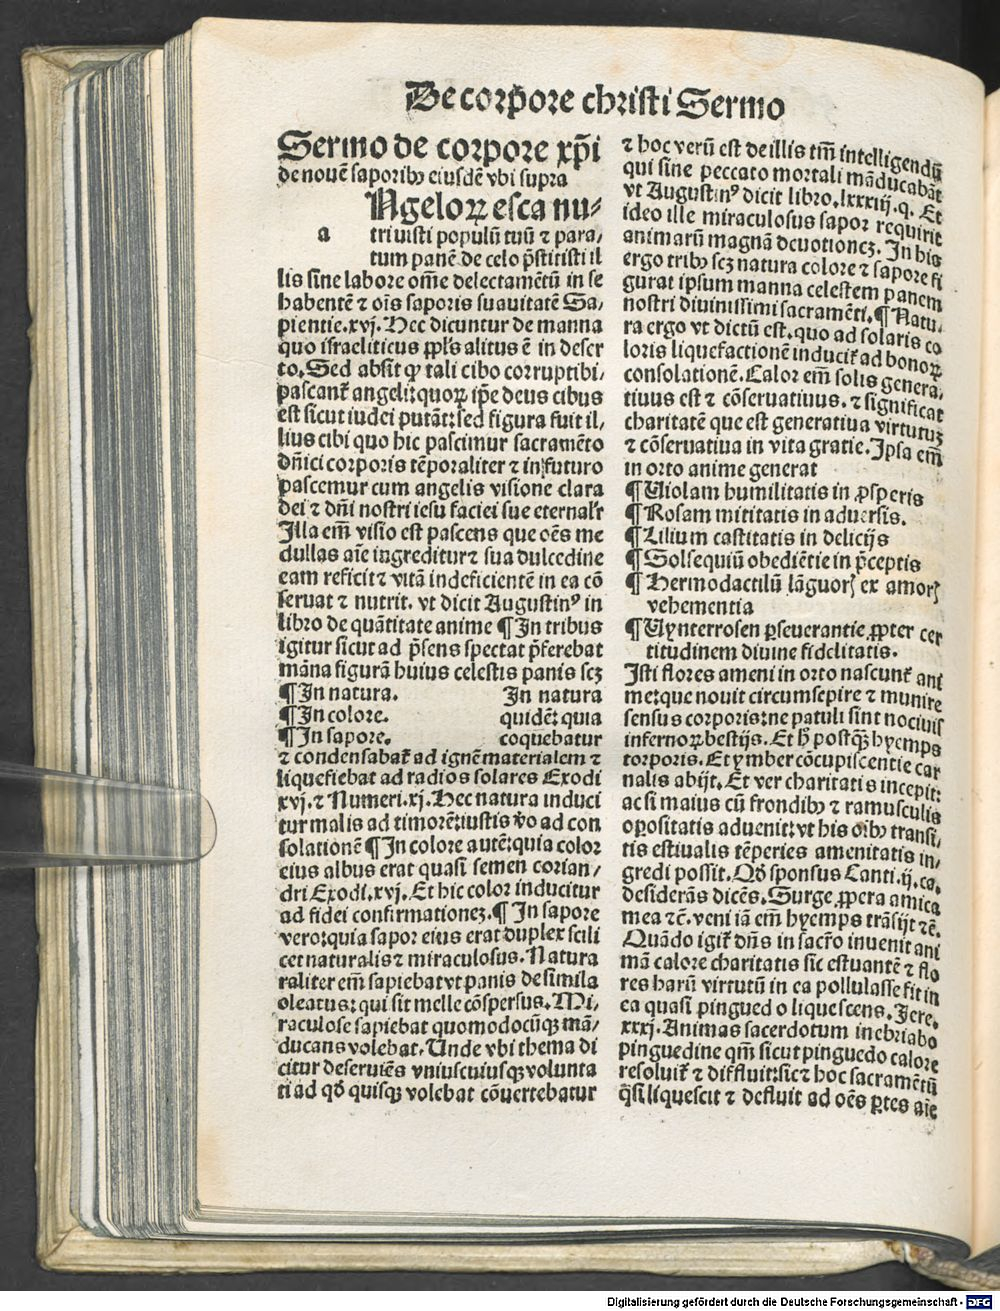 De corp̄ore christi Sermo
Sermo de corpore xp̄i
de nouē saporibꝫ eiusdē vbi supra
Angeloꝝ esca nu⸗
a
triuisti populū tuū ⁊ para⸗
tum panē de celo p̄stitisti il
lis sine labore om̄e delectamētū in se
habentē ⁊ oīs saporis suauitatē Sa⸗
pientie.xvj. Hec dicuntur de manna
quo israeliticus ꝓpl's alitus ē in deser
to. Sed absit ꝙ tali cibo corruptibi⸗
pascant᷑ angeli: quoꝝ ip̄e deus cibus
est sicut iudei putāt: sed figura fuit il⸗
lius cibi quo hic pascimur sacramēto
dn̄ici corporis tēporaliter ⁊ in futuro
pascemur cum angelis visione clara
dei ⁊ dn̄i nostri iesu faciei sue eternal'r
Illa em̄ visio est pascens que oēs me
dullas aīe ingreditur ⁊ sua dulcedine
eam reficit ⁊ vitā indeficientē in ea cō
seruat ⁊ nutrit. vt dicit Augustinꝰ in
libro de quātitate anime ¶ In tribus
igitur sicut ad p̄sens spectat p̄ferebat
māna figurā huius celestis panis scꝫ
¶ In natura. In natura
¶ In colore. quidē: quia
¶ In sapore. coquebatur
⁊ condensabat᷑ ad ignē materialem ⁊
liquefiebat ad radios solares Exodi
xvj. ⁊ Numeri.xj. Hec natura induci
tur malis ad timorē: iustis ṽo ad con
solationē ¶ In colore autē: quia color
eius albus erat quasi semen corian⸗
dri Exodi.xvj. Et hic color inducitur
ad fidei confirmationeꝫ. ¶ In sapore
vero: quia sapor eius erat duplex scili
cet naturalis ⁊ miraculosus. Natura
raliter em̄ sapiebat vt panis de simila
oleatus: qui sit melle cōspersus. Mi⸗
raculose sapiebat quomodocūqꝫ mā⸗
ducans volebat. Unde vbi thema di
citur deseruiēs vniuscuiusqꝫ volunta
ti ad qd̄ quisqꝫ volebat cōuertebatur
⁊ hoc verū est de illis tm̄ intelligendū
qui sine peccato mortali māducabāt
vt Augustinꝰ dicit libro.lxxxiij.q. Et
ideo ille miraculosus sapor requirit
animarū magnā deuotioneꝫ. In his
ergo tribꝫ scꝫ natura colore ⁊ sapore fi
gurat ipsum manna celestem panem
nostri diuinissimi sacramēti. ¶ Natu⸗
ra ergo vt dictū est. quo ad solaris co
loris liquefactionē inducit᷑ ad bonoꝝ
consolationē. Calor em̄ solis genera⸗
tiuus est ⁊ cōseruatiuus. ⁊ significat
charitatē que est generatiua virtutuꝫ
⁊ cōseruatiua in vita gratie. Ipsa em̄
in orto anime generat
¶ Uiolam humilitatis in ꝓsperis
¶ Rosam mititatis in aduersis.
¶ Lilium castitatis in delicijs
¶ Solsequiū obediētie in p̄ceptis
¶ Hermodactilū lāguoꝝ ex amoꝝ
vehementia
¶ Wynterrosen ꝑseuerantie ꝓpter cer
titudinem diuine fidelitatis.
Isti flores ameni in orto nascunt᷑ ani
me: que nouit circumsepire ⁊ munire
sensus corporis: ne patuli sint nociuis
infernoꝝ bestijs. Et h̄ postqꝫ hyemps
torporis. Et ymber cōcupiscentie car
nalis abijt. Et ver charitatis incepit:
ac si maius cū frondibꝫ ⁊ ramusculis
opositatis aduenit: vt his oībꝫ transi⸗
tis estiualis tēperies amenitatis in⸗
gredi possit. Qd̄ sponsus Canti.ij. ca.
desiderās dicēs. Surge ꝓpera amica
mea ⁊c̄. veni iā em̄ hyemps trāsijt ⁊c̄.
Quādo igit᷑ dn̄s in sacr̄o inuenit ani
mā calore charitatis sic estuantē ⁊ flo
res harū virtutū in ea pollulasse fit in
ea quasi pinguedo liquescens. Jere.
xxxj. Animas sacerdotum inebriabo
pinguedine qm̄ sicut pinguedo calore
resoluit᷑ ⁊ diffluit: sic ⁊ hoc sacramētū
q̄si liquescit ⁊ defluit ad oēs ꝑtes aīe
Digitalisierung gefördert durch die Deutsche Forschungsgemeinschaft - DFG